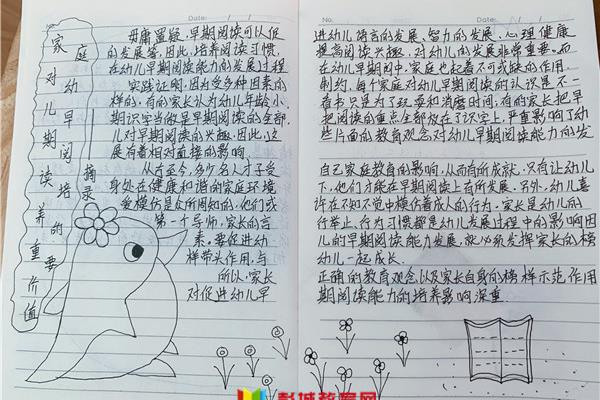 家庭对幼儿早期阅读培养的重要价值
摘录
Date:
毋庸置疑，早期阅读可以促
的发展等。因此，培养阅读习惯
在幼儿早期阅读能力的发展过程
实践证明，因为受多种因素的
样的，有的家长认为幼儿年龄小、
期识字当做是早期阅读的全部，
儿对早期阅读的兴趣。因此，这
展有着相对直接的影响。
从古至今，多少名人才子受
身处在健康和谐的家庭环境
受模仿是众所周知的，他们或
第一个导师，家长的言
素，要促进幼
样带头作用，与
所以，家长
对促进幼儿早
Date:
进幼儿语言的发展、智力的发展、心理健康
提高阅读兴趣，对幼儿的发展非常重要。而
在幼儿早期阅中，家庭也起着不可或缺的作用。
制约，每个家庭对幼儿阅读的认识是不一
看书只是为了玩耍和消磨时间，有的家长把早
把阅读的重点全部放在了识字上，严重影响了幼
些片面的教育观念对幼儿早期阅读能力的发
自己家庭教育的影响，从而有所成就，只有让幼儿
下，他们才能在早期阅读上有所发展。另外，幼儿喜
许在不知不觉中模仿着成人的行为。家长是幼儿的
行举止、行为习惯都是幼儿发展过程中的影响因
儿的早期阅读能力发展，就必须发挥家长的榜
幼儿一起成长。
正确的教育观念以及家长自身的榜样示范作用
期阅读能力的培养影响深重。
彭城教育网